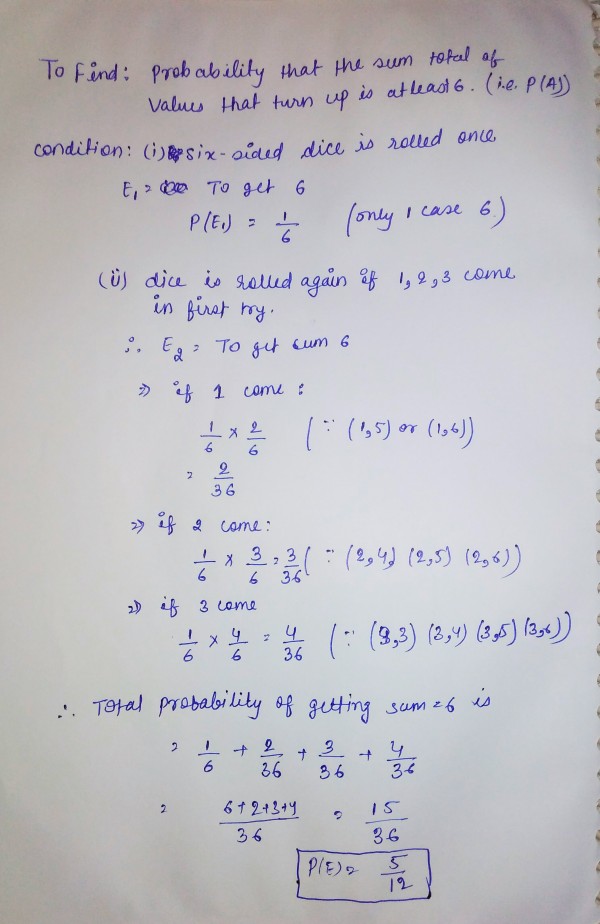 To Find: Probability that the sum total of
values that turn up is atleast 6. (i.e. P(A))
condition: (i) six-sided dice is rolled once
E₁ = To get 6
P(E₁) = 1/6 (only 1 case 6)
(ii) dice is rolled again if 1,2,3 come
in first try.
∴ E₂ = To get sum 6
⇒ if 1 come :
1/6 × 2/6 (∵ (1,5) or (1,6))
= 2/36
⇒ if 2 come:
1/6 × 3/6 = 3/36 (∵ (2,4) (2,5) (2,6))
⇒ if 3 come
1/6 × 4/6 = 4/36 (∵ (3,3) (3,4) (3,5) (3,6))
∴ Total probability of getting sum = 6 is
= 1/6 + 2/36 + 3/36 + 4/36
= 6+2+3+4/36 = 15/36
P(E) = 5/12